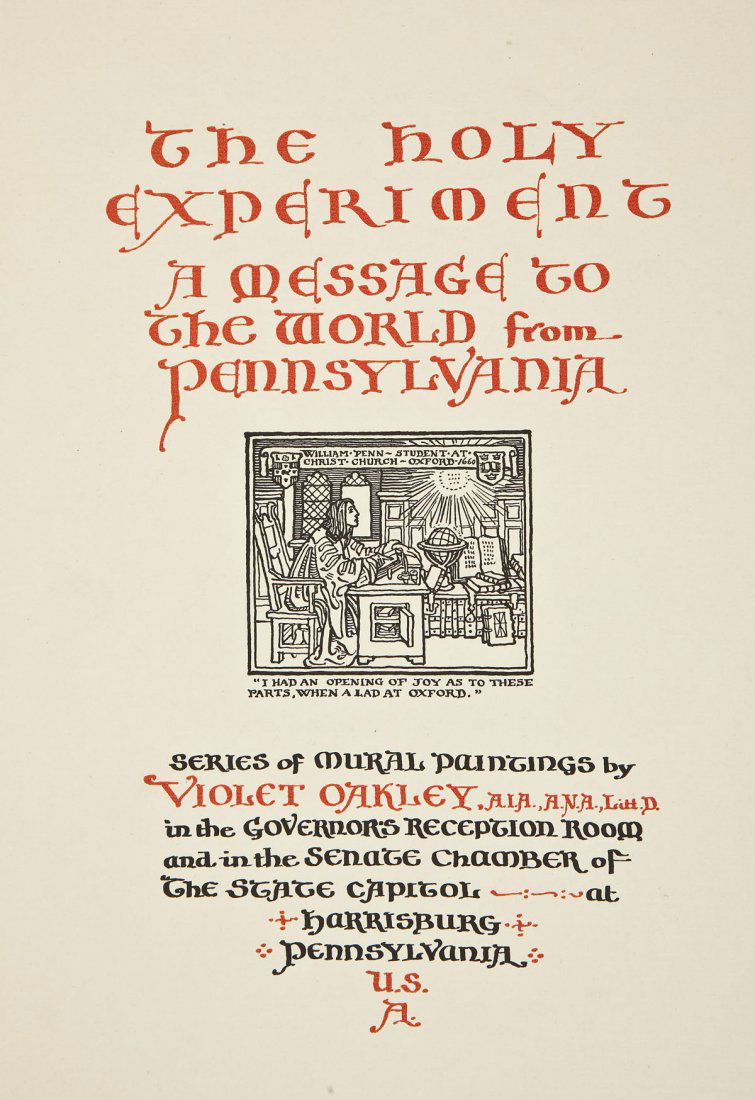 The Holy
Experiment
A Message to
the World from
Pennsylvania
WILLIAM·PENN~STUDENT·AT·
CHRIST·CHURCH~OXFORD·1660
"I HAD AN OPENING OF JOY AS TO THESE
PARTS, WHEN A LAD AT OXFORD."
SERIES of MURAL PAINTINGS by
VIOLET OAKLEY, A.I.A., A.N.A., Litt.D.
in the GOVERNOR'S RECEPTION ROOM
and in the SENATE CHAMBER of
The STATE CAPITOL at
HARRISBURG
PENNSYLVANIA
U.S.
A.